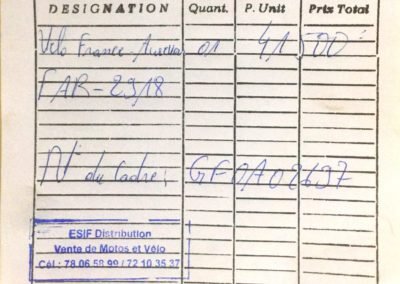 DESIGNATION Quant. P. Unit Prix Total
Vélo France 01 41 500
FAR-2318
N° du Cadre: GF0A02637
ESIF Distribution
Vente de Motos et Vélo
Cél : 78 06 58 99 / 72 10 35 37